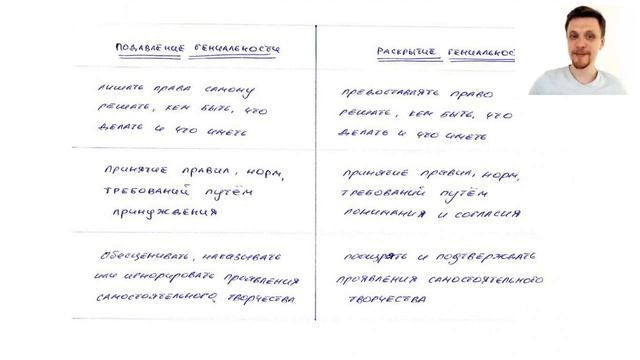 ПОДАВЛЕНИЕ ГЕНИАЛЬНОСТИ
РАСКРЫТИЕ ГЕНИАЛЬНОС
ЛИШАТЬ ПРАВА САМОМУ
РЕШАТЬ, КЕМ БЫТЬ, ЧТО
ДЕЛАТЬ И ЧТО ИМЕТЬ
ПРЕДОСТАВЛЯТЬ ПРАВО
РЕШАТЬ, КЕМ БЫТЬ, ЧТО
ДЕЛАТЬ И ЧТО ИМЕТЬ
ПРИНЯТИЕ ПРАВИЛ, НОРМ,
ТРЕБОВАНИЙ ПУТЁМ
ПРИНУЖДЕНИЯ
ПРИНЯТИЕ ПРАВИЛ, НОРМ,
ТРЕБОВАНИЙ ПУТЁМ
ПОНИМАНИЯ И СОГЛАСИЯ
ОБЕСЦЕНИВАТЬ, НАКАЗЫВАТЬ
ИЛИ ИГНОРИРОВАТЬ ПРОЯВЛЕНИЯ
САМОСТОЯТЕЛЬНОГО ТВОРЧЕСТВА
ПООЩРЯТЬ И ПОДТВЕРЖДАТЬ
ПРОЯВЛЕНИЯ САМОСТОЯТЕЛЬНОГО
ТВОРЧЕСТВА